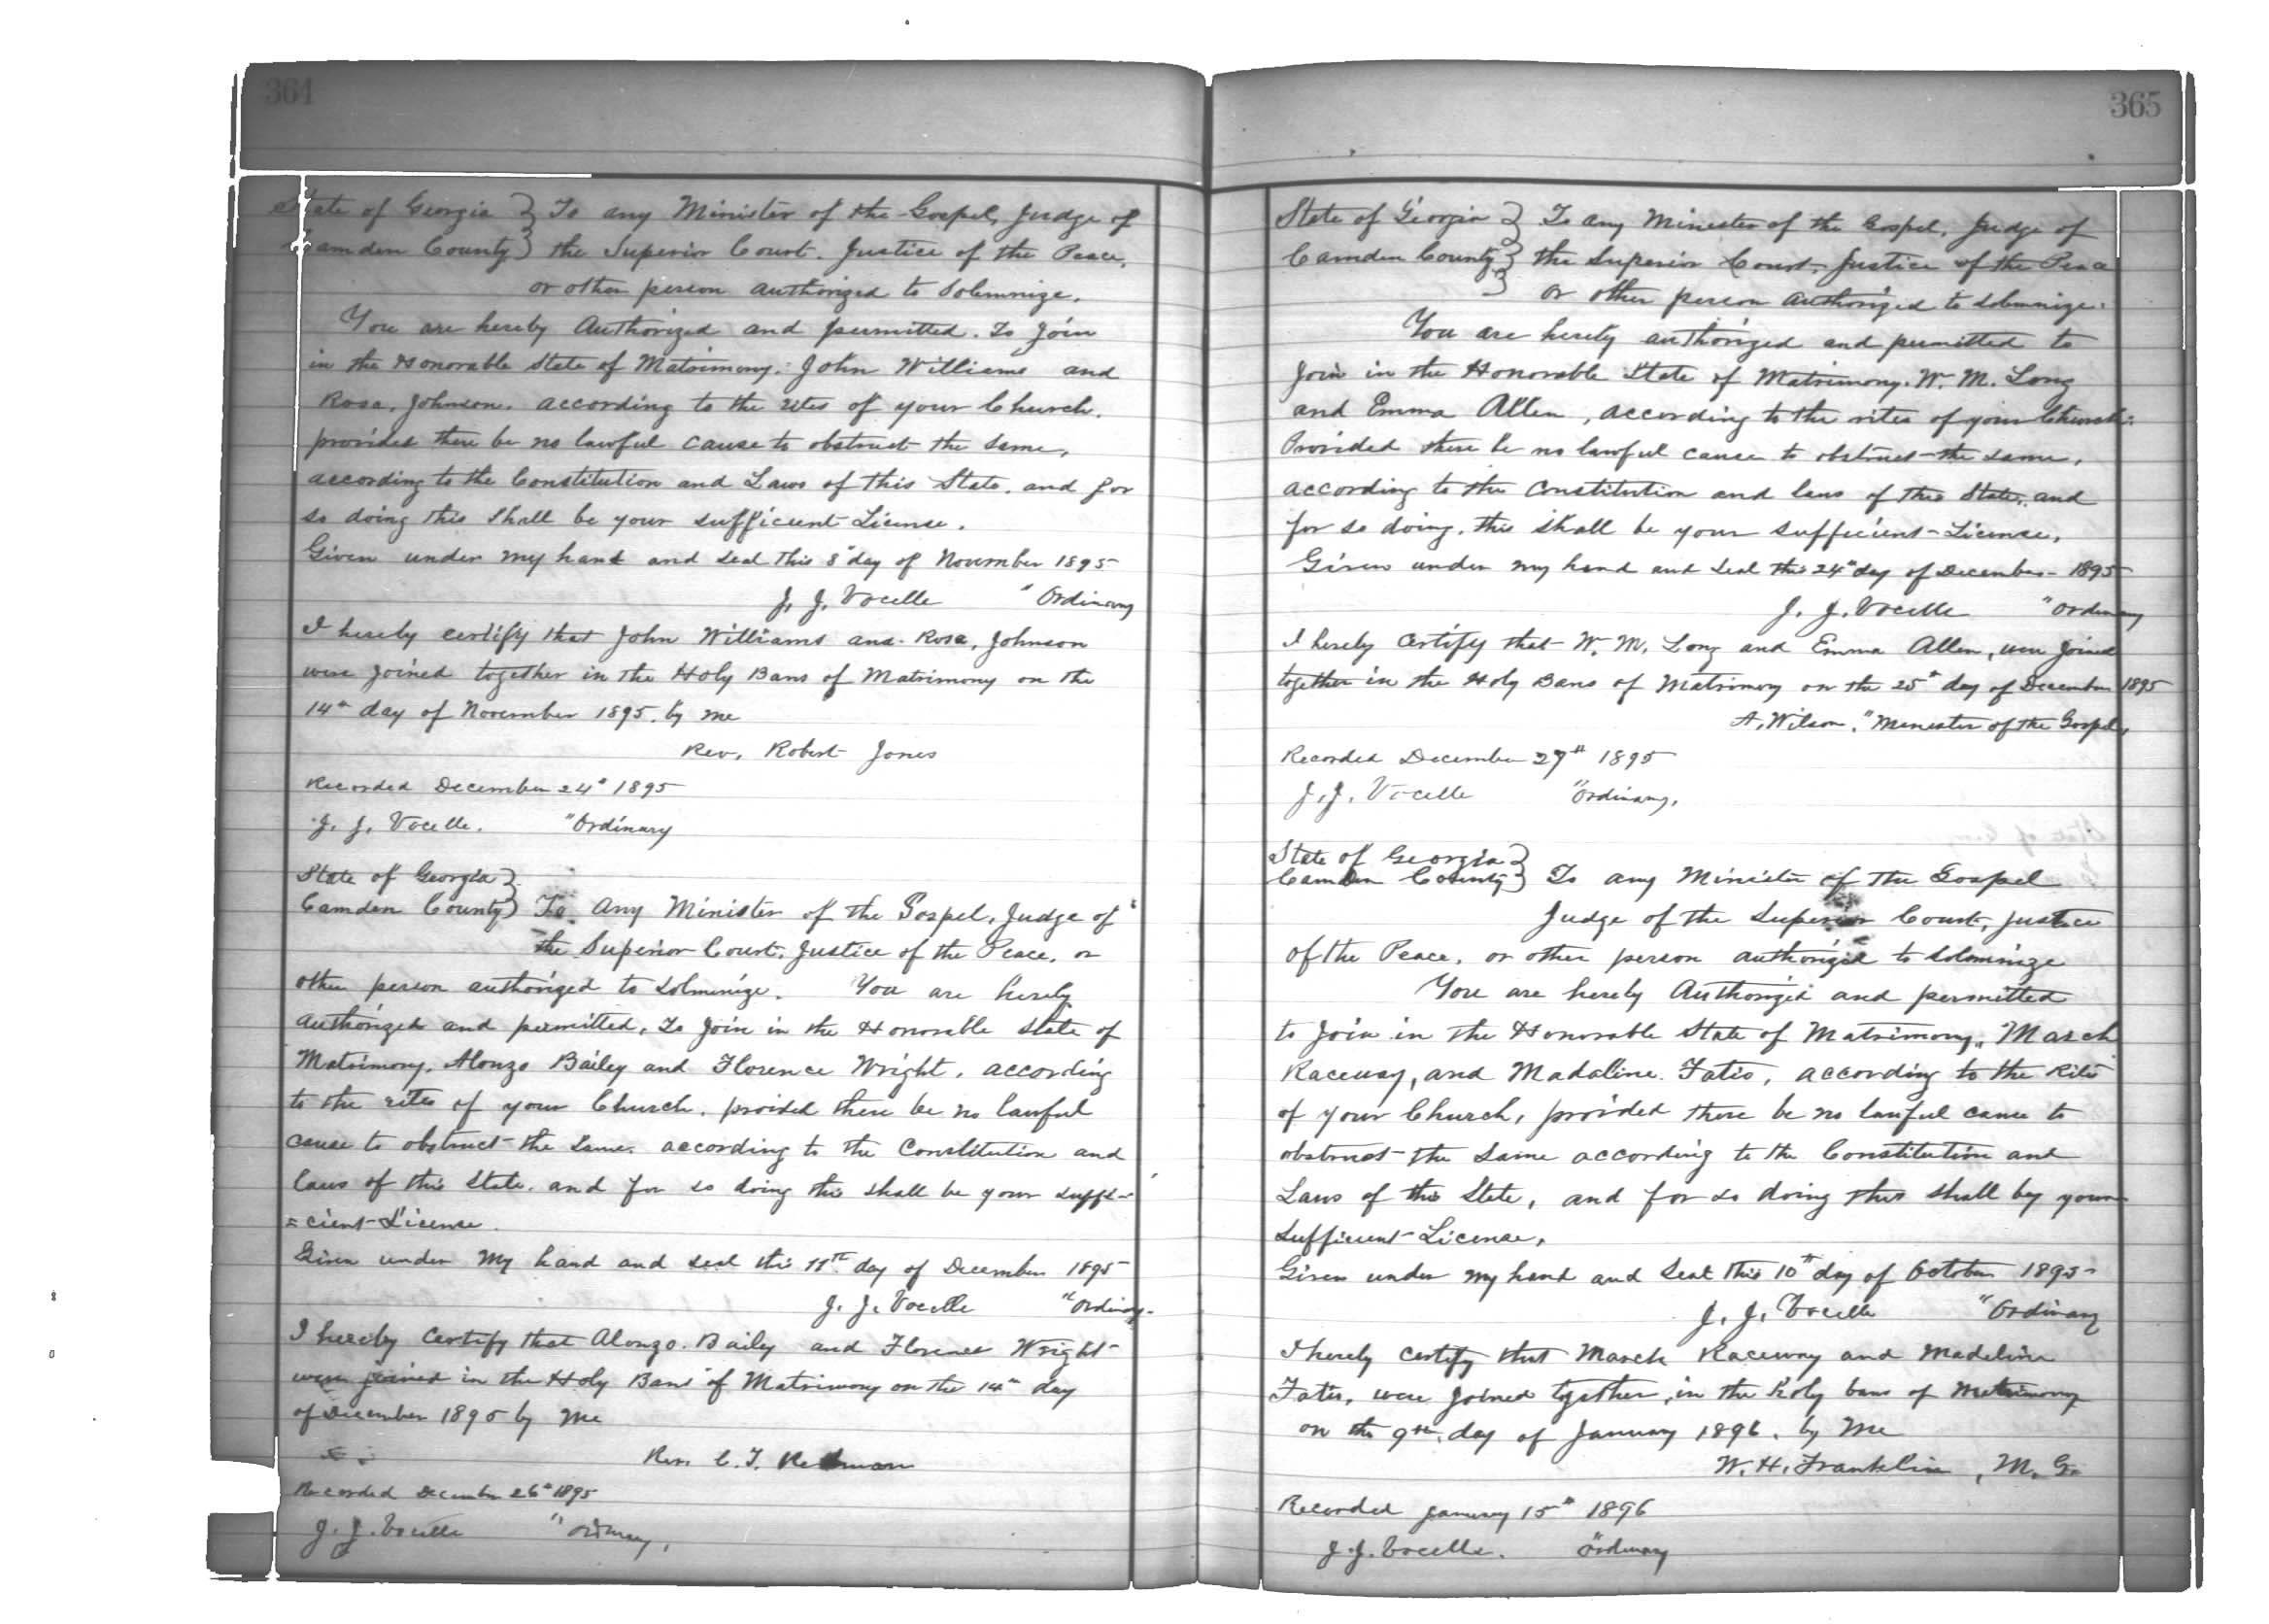 364
State of Georgia } To any Minister of the Gospel, Judge of
Camden County } the Superior Court. Justice of the Peace,
or other person authorized to Solemnize.
You are hereby Authorized and permitted. To Join
in the Honorable State of Matrimony. John Williams and
Rosa, Johnson. according to the rites of your Church.
provided there be no lawful cause to obstruct the same,
according to the Constitution and Laws of this State. and for
so doing this shall be your sufficient License.
Given under my hand and seal this 8" day of November 1895
J. J. Vocelle " Ordinary
I hereby certify that John Williams and Rosa, Johnson
were joined together in the Holy Bans of Matrimony on the
14th day of November 1895. by me
Rev. Robert Jones
Recorded December 24th 1895
J. J. Vocelle. "Ordinary
State of Georgia }
Camden County } To Any Minister of the Gospel, Judge of
the Superior Court. Justice of the Peace. or
other person authorized to Solminize. You are hereby
authorized and permitted, To Join in the Honorable State of
Matrimony. Alonzo Bailey and Florence Wright. according
to the rites of your Church. provided there be no lawful
cause to obstruct the same. according to the Constitution and
laws of this State. and for so doing this shall be your suffi-
=cient License.
Given under My hand and seal this 11th day of December 1895
J. J. Vocelle "Ordinary
I hereby Certify that Alonzo. Baily and Florence Wright
were joined in the Holy Bans of Matrimony on the 14th day
of December 1895 by Me
Rev. C. T. Redman
Recorded December 26th 1895
J. J. Vocelle "Ordinary,
365
State of Georgia } To any Minister of the Gospel, Judge of
Camden County } the Superior Court, Justice of the Peace
or other person authorized to solemnize.
You are hereby authorized and permitted to
Join in the Honorable State of Matrimony. W. M. Long
and Emma Allen, according to the rites of your Church.
Provided there be no lawful cause to obstruct the same,
according to the Constitution and laws of this State, and
for so doing, this shall be your sufficient License,
Given under my hand and seal this 24th day of December 1895
J. J. Vocelle "Ordinary
I hereby Certify that W. M. Long and Emma Allen, were joined
together in the Holy Bans of Matrimony on the 25th day of December 1895
A. Wilson, "Minester of the Gospel,
Recorded December 27th 1895
J. J. Vocelle "Ordinary,
State of Georgia }
Camden County } To any Minister of the Gospel
Judge of the Superior Court, Justice
of the Peace, or other person authorized to solominize
You are hereby Authorized and permitted
to Join in the Honorable State of Matrimony, March
Raceway, and Madaline. Fatio, according to the Rites
of your Church, provided there be no lawful cause to
obstruct the same according to the Constitution and
Laws of this State, and for so doing this shall by your
sufficient License,
Given under my hand and seal this 10th day of October 1895
J. J. Vocelle "Ordinary
I hereby certify that March Raceway and Madeline
Fatio, were joined together, in the holy bans of Matrimony
on the 9th. day of January 1896. by Me
W. H. Franklin, M. G.
Recorded January 15th 1896
J. J. Vocelle. "Ordinary